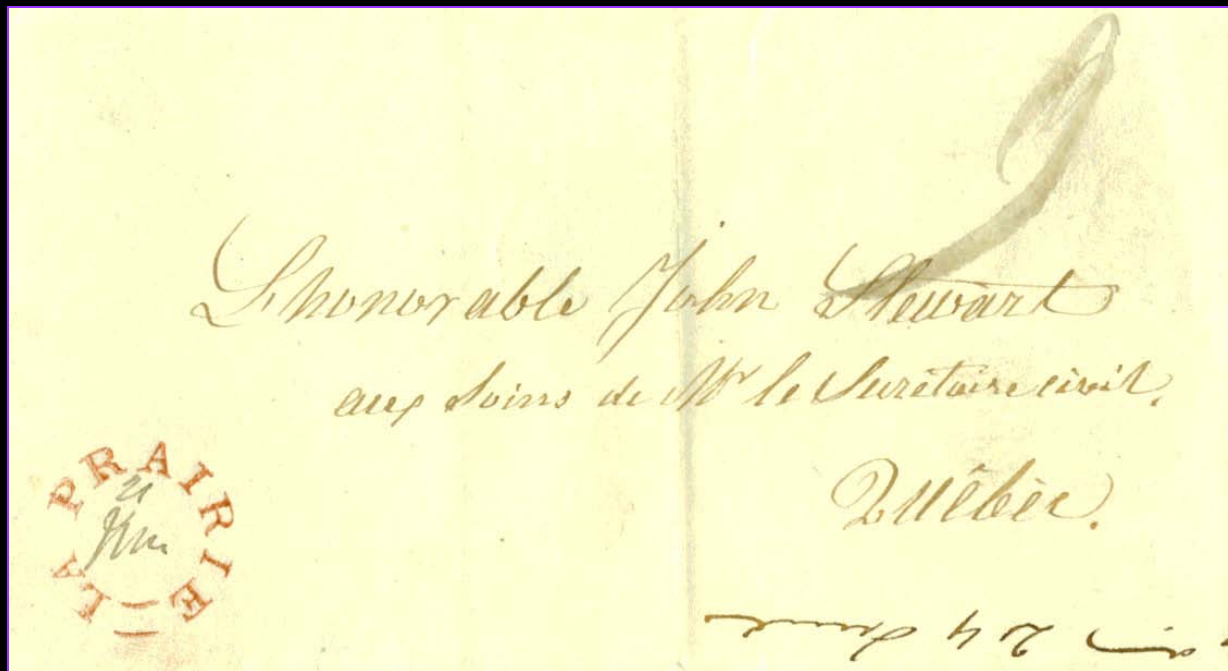 9
L'honorable John Stewart
aux soins de Mr le Secrétaire civil.
Québec.
LA PRAIRIE
21
24 June